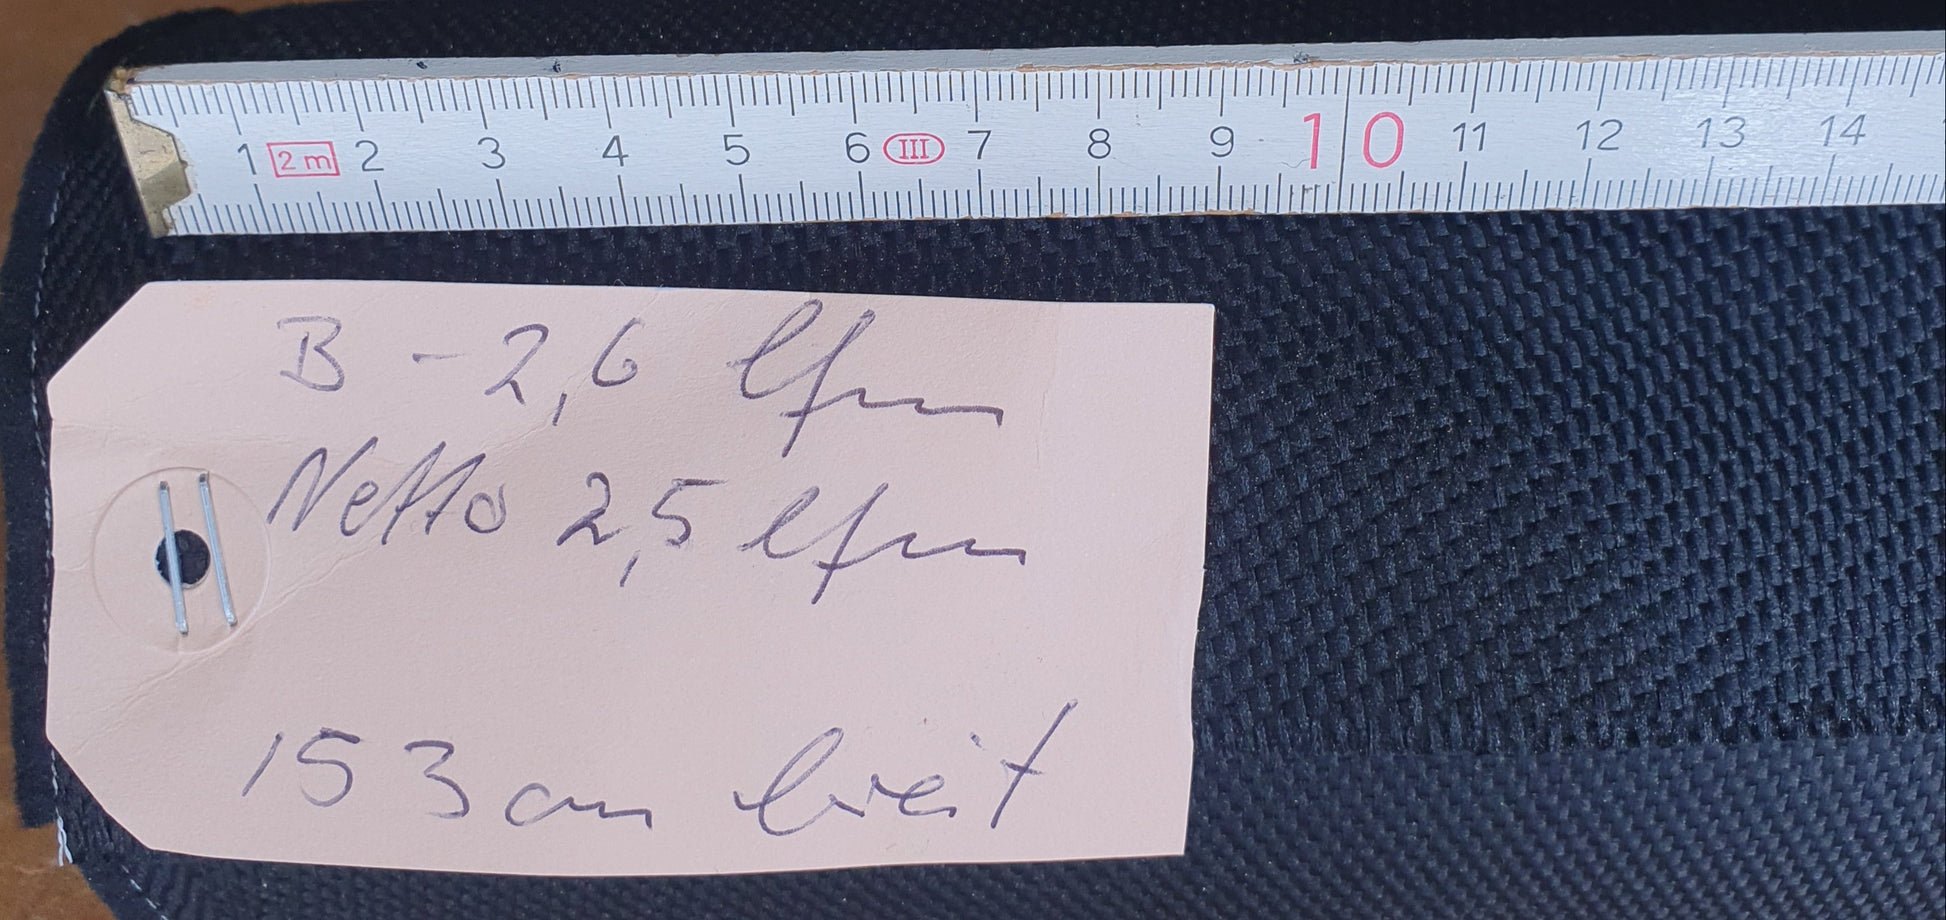 1 2 m 2 3 4 5 6 III 7 8 9 10 11 12 13 14
B - 2,6 lfm
Netto 2,5 lfm
153 cm breit